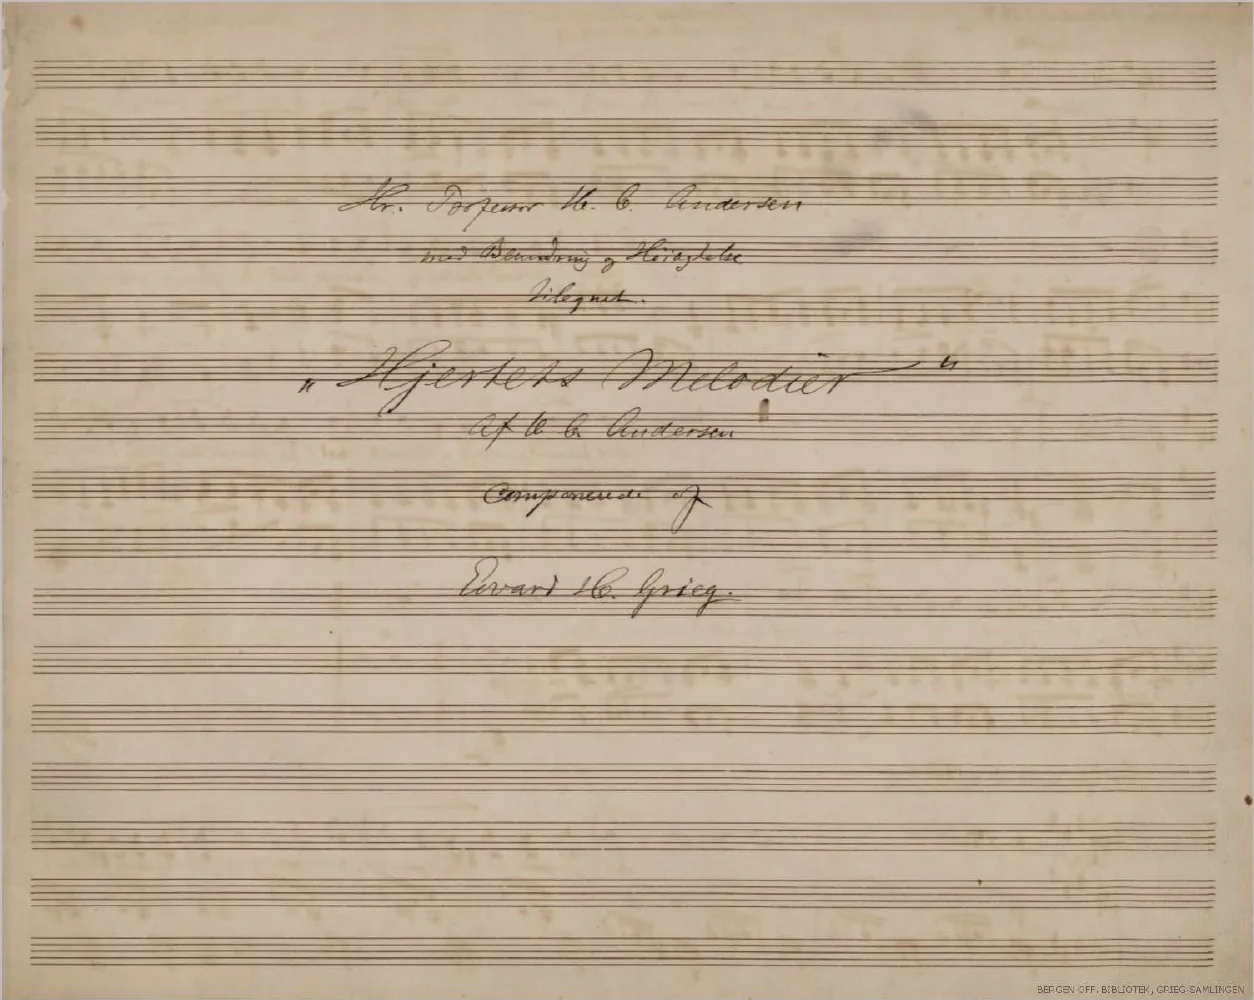 Hr. Professor H. C. Andersen
med Beundring og Høiagtelse
tilegnet.
„Hjertets Melodier“
af H. C. Andersen
componerede af
Edvard H. Grieg.
BERGEN OFF. BIBLIOTEK, GRIEG-SAMLINGEN